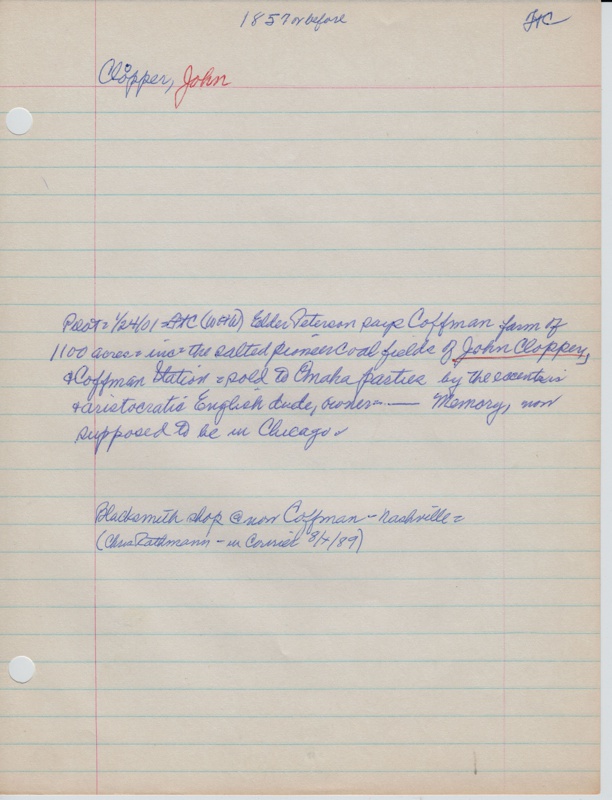 1857 or before FtC
Clopper, John
Pilot = 1/24/01 = FtC (W&W) Elder Peterson says Coffman farm of
1100 acres = inc = the salted pioneer coal fields of John Clopper,
& Coffman Station = sold to Omaha parties by the eccentric
& aristocratic English dude, owner = — Memory, now
supposed to be in Chicago =
Blacksmith shop @ now Coffman - Nashville =
(Chris Rathmann - in Courier 8/4/89)